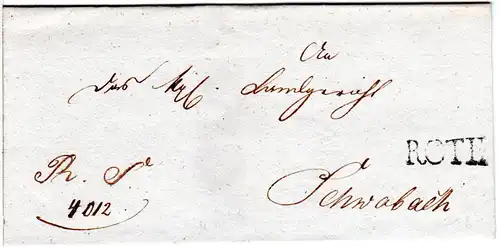 An
das Kgl. Landgericht
ROTH
R. S.
4012
Schwabach